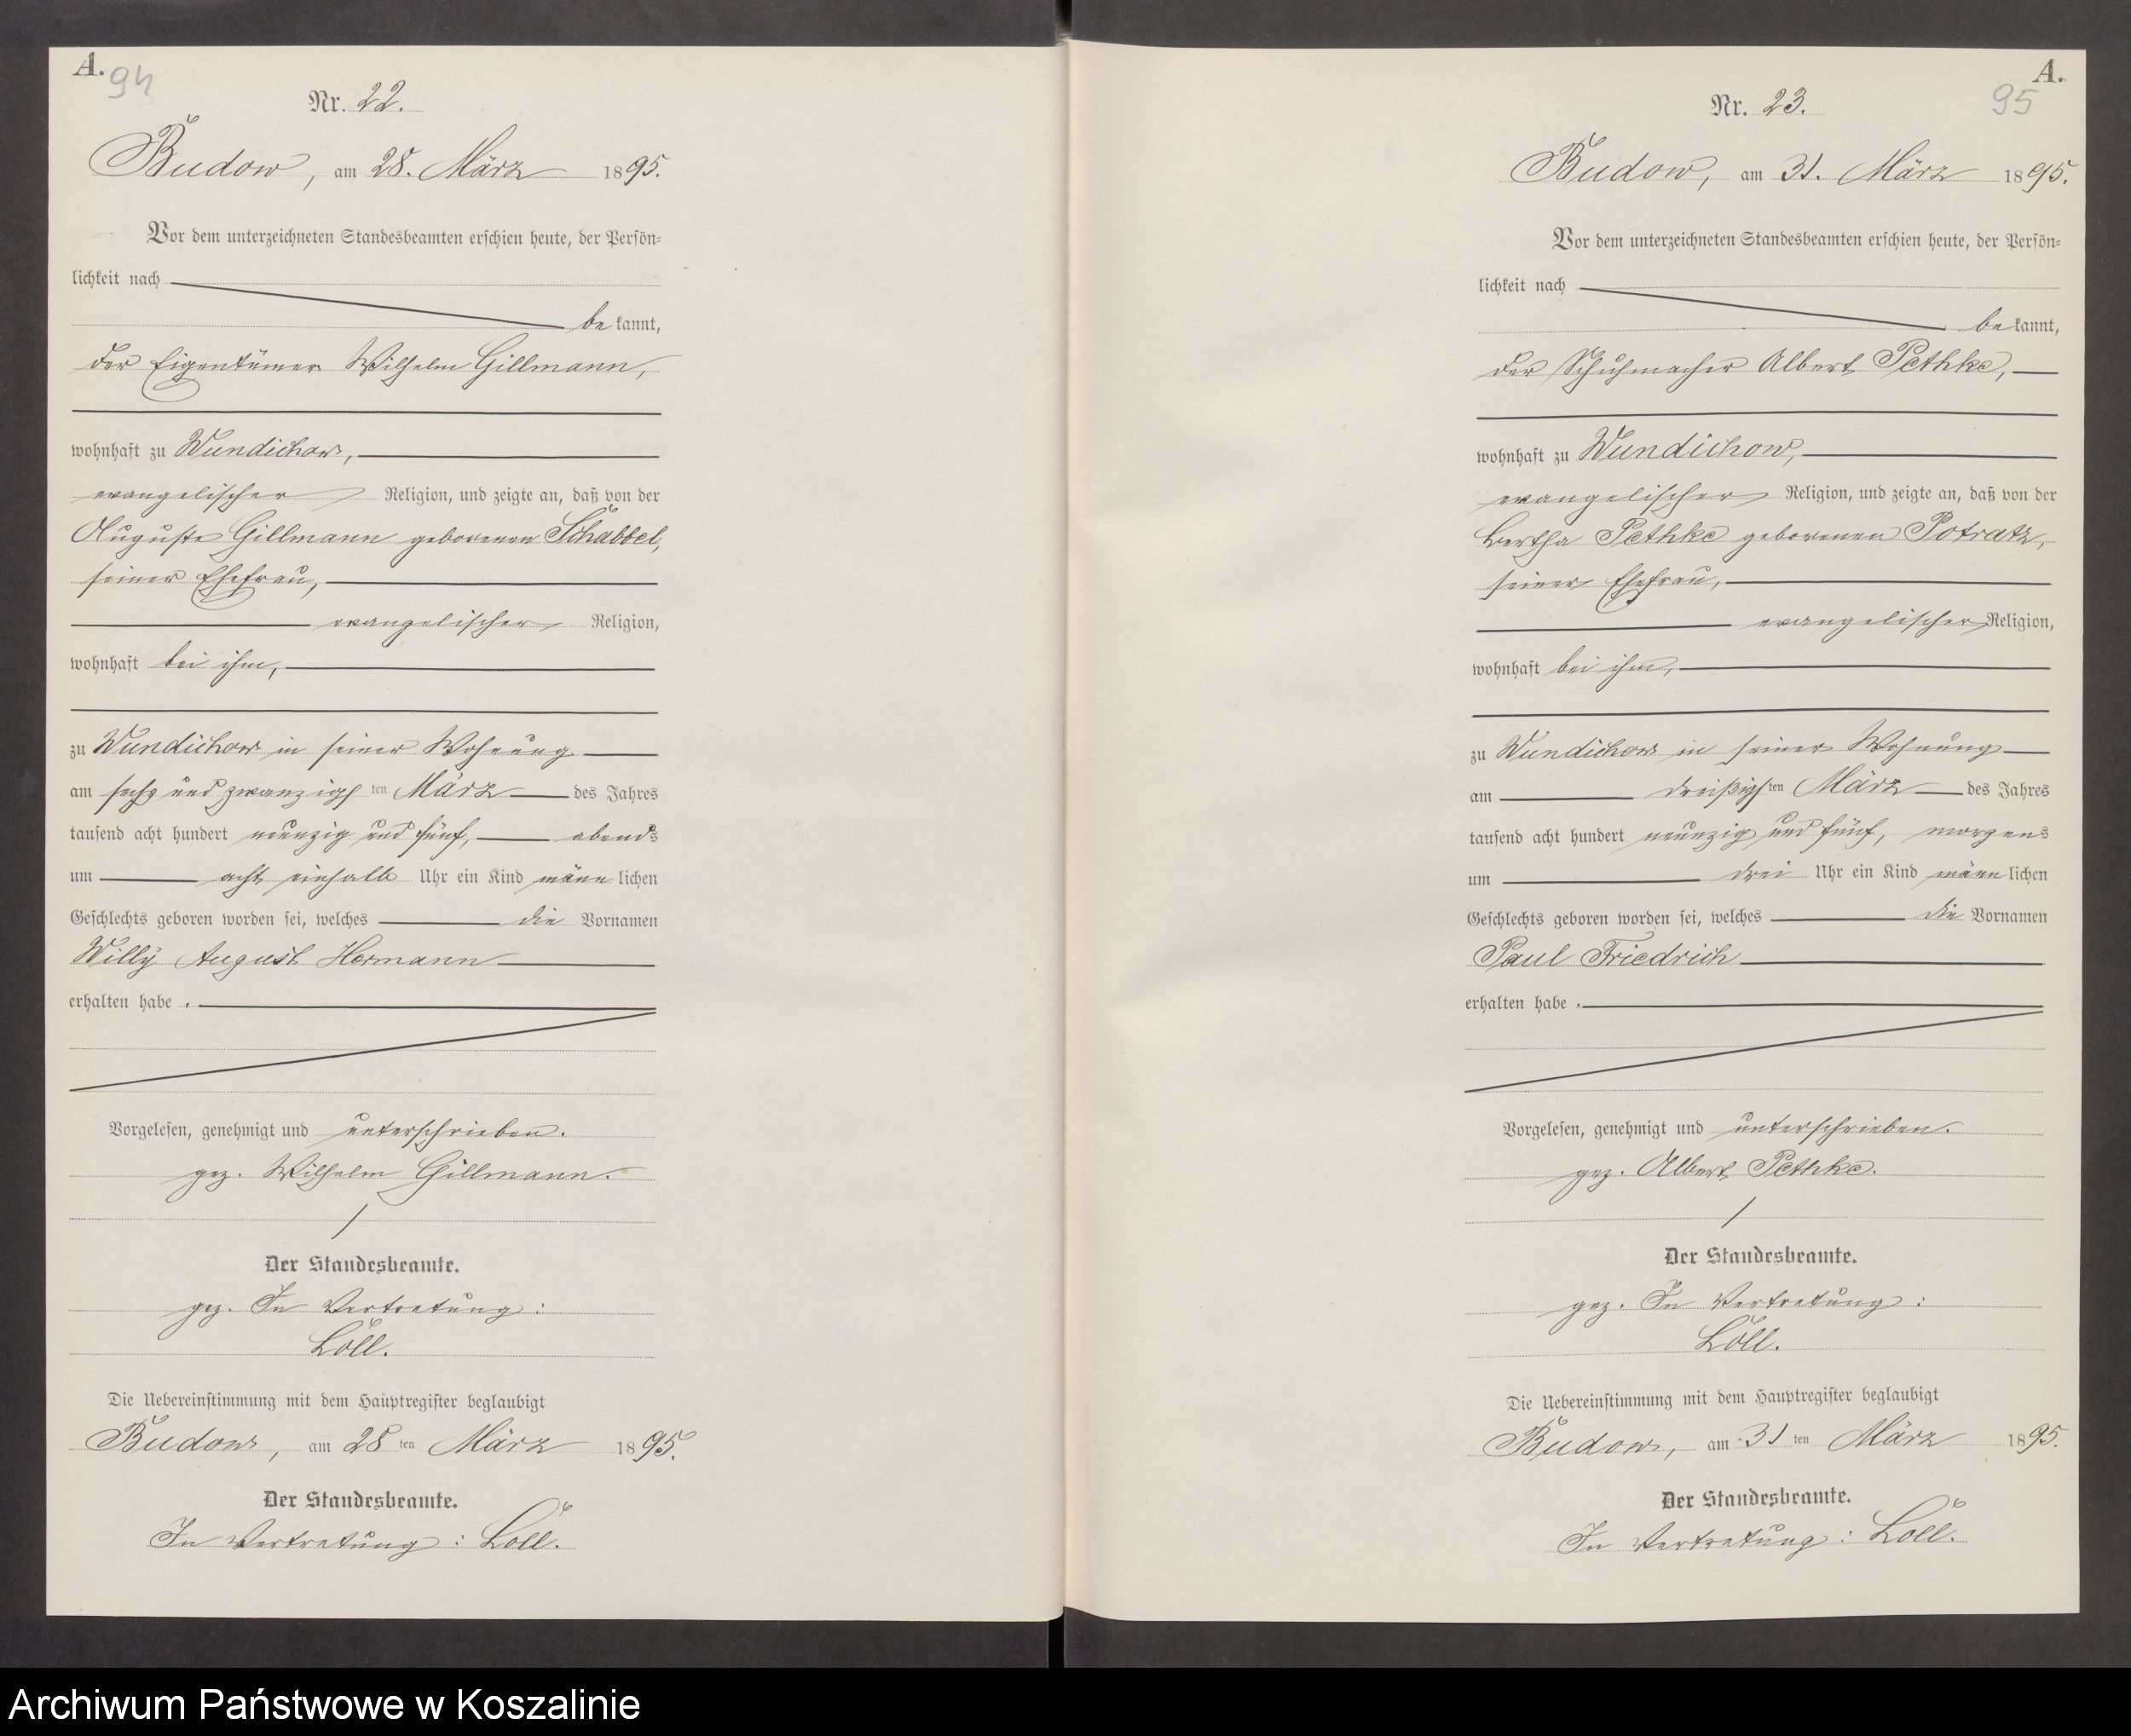 A.
94
Nr. 22.
Budow, am 28. März 1895.
Vor dem unterzeichneten Standesbeamten erschien heute, der Persön-
lichkeit nach
be kannt,
der Eigentümer Wilhelm Gillmann,
wohnhaft zu Wundichow,
evangelischer Religion, und zeigte an, daß von der
Auguste Gillmann geborenen Schabbel,
seiner Ehefrau,
evangelischer Religion,
wohnhaft bei ihm,
zu Wundichow in seiner Wohnung
am sechs und zwanzigs ten März des Jahres
tausend acht hundert neunzig und fünf, abends
um acht einhalb Uhr ein Kind männ lichen
Geschlechts geboren worden sei, welches die Vornamen
Willy August Hermann
erhalten habe.
Vorgelesen, genehmigt und unterschrieben.
gez. Wilhelm Gillmann.
Der Standesbeamte.
gez. In Vertretung:
Löll.
Die Uebereinstimmung mit dem Hauptregister beglaubigt
Budow, am 28 ten März 1895.
Der Standesbeamte.
In Vertretung: Löll.
A.
95
Nr. 23.
Budow, am 31. März 1895.
Vor dem unterzeichneten Standesbeamten erschien heute, der Persön-
lichkeit nach
be kannt,
der Schuhmacher Albert Pethke,
wohnhaft zu Wundichow,
evangelischer Religion, und zeigte an, daß von der
Bertha Pethke geborenen Potratz,
seiner Ehefrau,
evangelischer Religion,
wohnhaft bei ihm,
zu Wundichow in seiner Wohnung
am dreißigs ten März des Jahres
tausend acht hundert neunzig und fünf, morgens
um drei Uhr ein Kind männ lichen
Geschlechts geboren worden sei, welches die Vornamen
Paul Friedrich
erhalten habe.
Vorgelesen, genehmigt und unterschrieben.
gez. Albert Pethke.
Der Standesbeamte.
gez. In Vertretung:
Löll.
Die Uebereinstimmung mit dem Hauptregister beglaubigt
Budow, am 31 ten März 1895.
Der Standesbeamte.
In Vertretung: Löll.
Archiwum Państwowe w Koszalinie